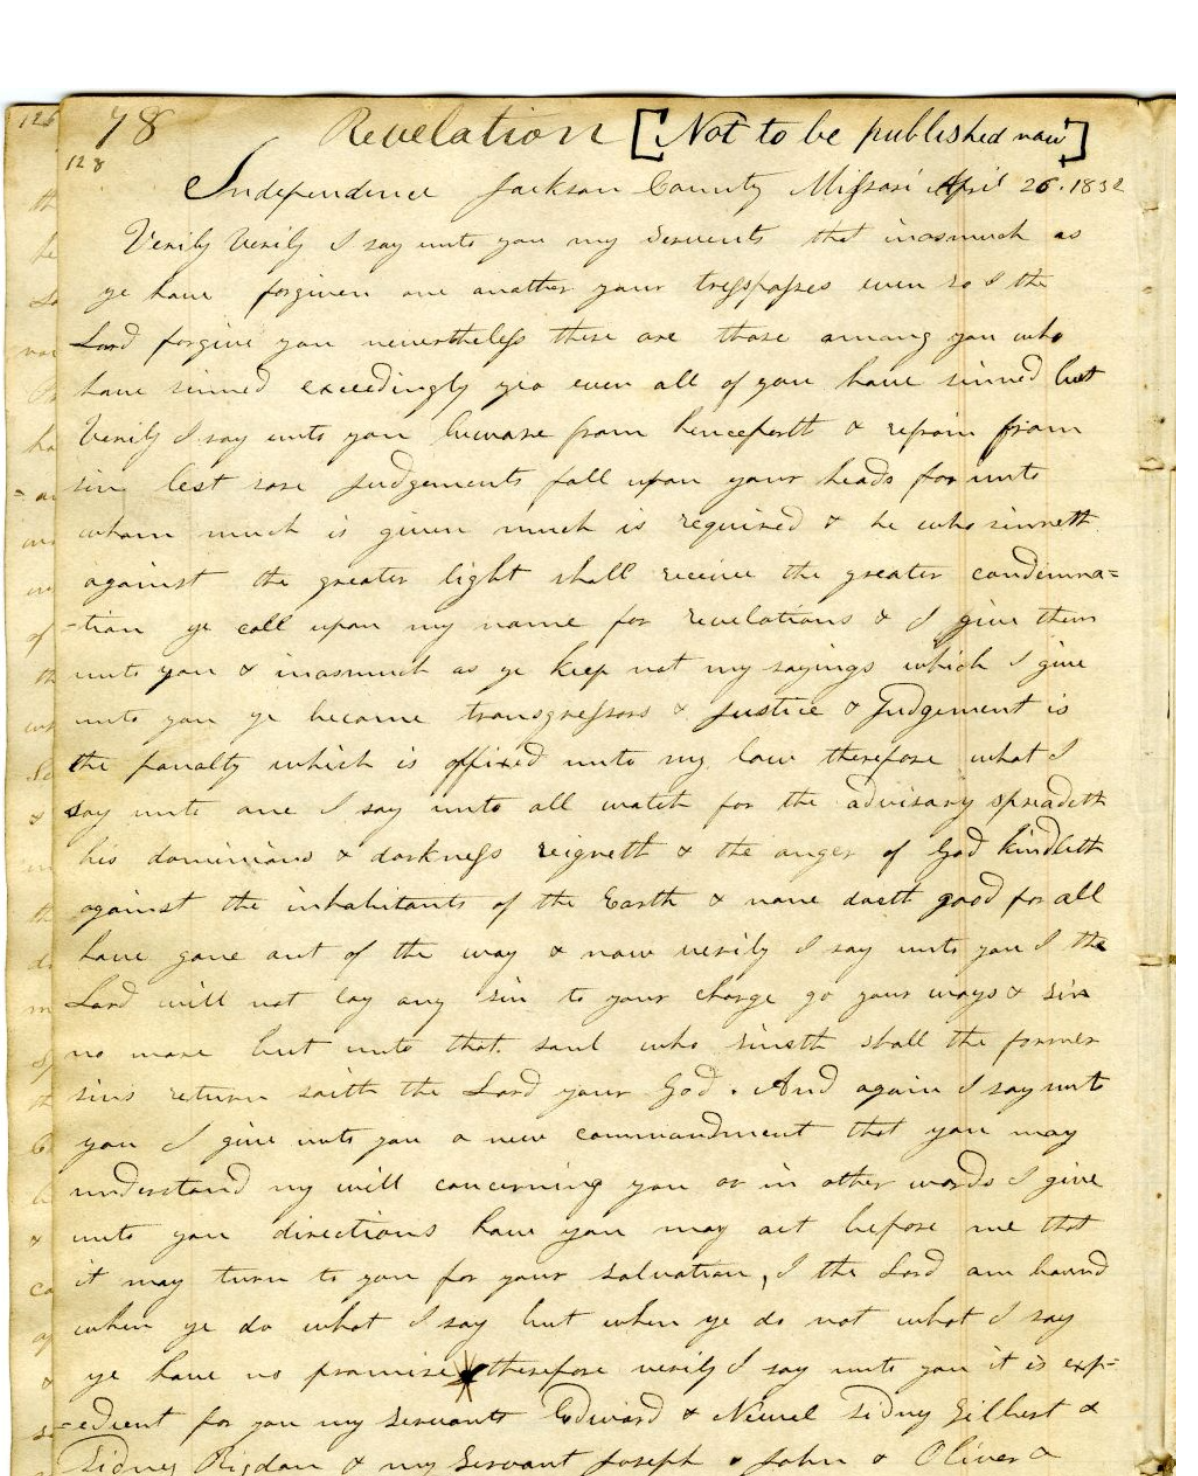 126
78 Revelation [Not to be published now]
128
Independence Jackson County Missori April 26. 1832
Verily Verily I say unto you my Servents that inasmuch as
ye have forgiven one another your tresspasses even so I the
Lord forgive you nevertheless there are those among you who
have sinned exceedingly yea even all of you have sinned but
Verily I say unto you beware from henceforth & refrain from
sin lest sore Judgements fall upon your heads for unto
whom much is given much is required & he who sinneth
against the greater light shall receive the greater condemna=
=tion ye call upon my name for revelations & I give them
unto you & inasmuch as ye keep not my sayings which I give
unto you ye become transgressors & Justice & Judgement is
the panalty which is affixed unto my law therefore what I
say unto one I say unto all watch for the advisary spreadeth
his dominions & darkness reigneth & the anger of God kindleth
against the inhabitants of the Earth & none doeth good for all
have gone out of the way & now verily I say unto you I the
Lord will not lay any sin to your charge go your ways & sin
no more but unto that soul who sineth shall the former
sins return saith the Lord your God. And again I say unto
you I give unto you a new commandment that you may
understand my will concerning you or in other words I give
unto you directions how you may act before me that
it may turn to you for your salvation, I the Lord am bound
when ye do what I say but when ye do not what I say
ye have no promise therefore verily I say unto you it is exp=
=edient for you my Servants Edward & Newel Sidney Gilbert &
Sidney Rigdon & my Servant Joseph & John & Oliver &